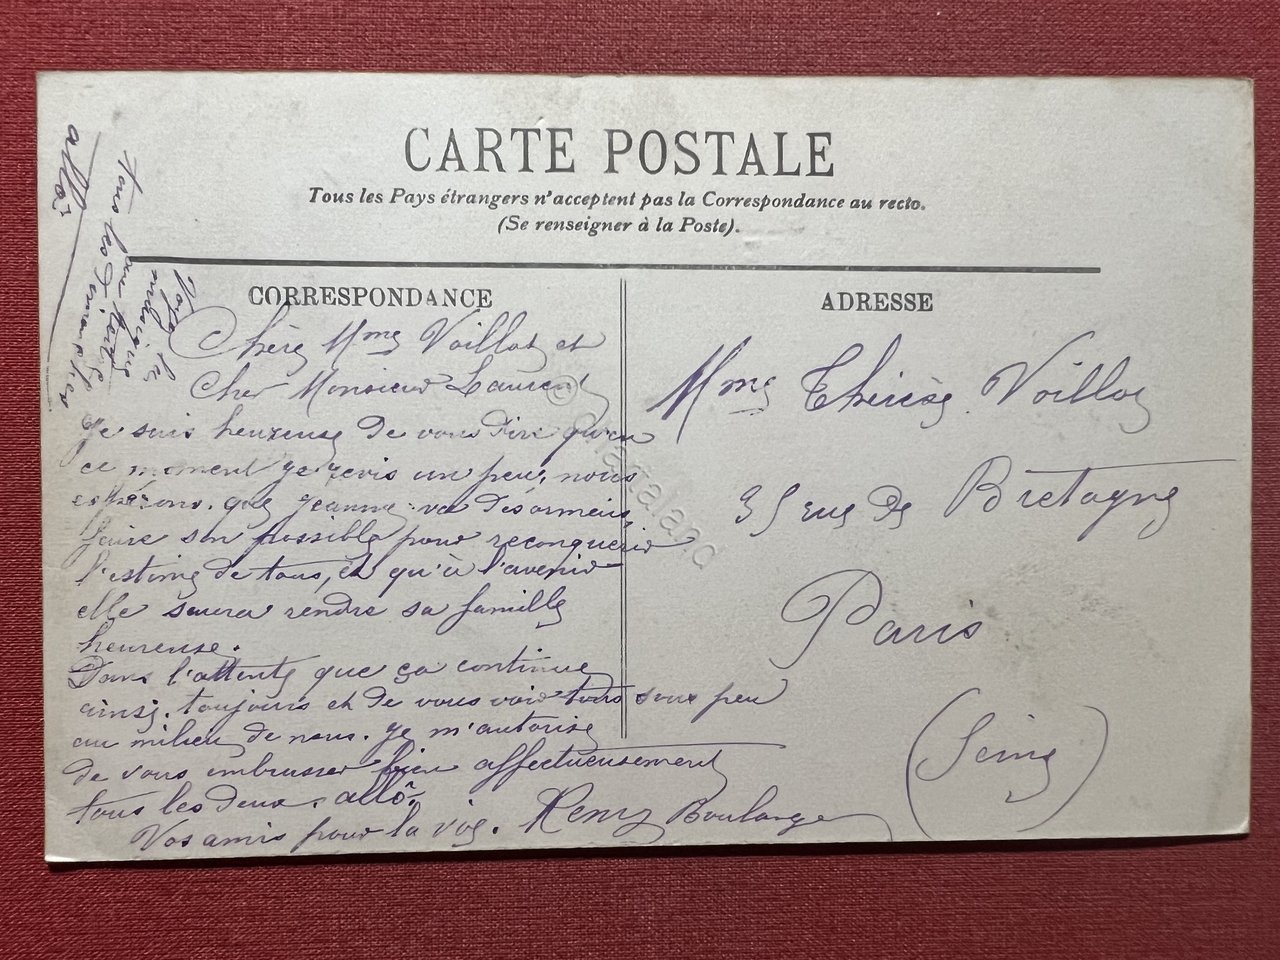 CARTE POSTALE
Tous les Pays étrangers n'acceptent pas la Correspondance au recto.
(Se renseigner à la Poste).
CORRESPONDANCE
ADRESSE
Chère Mme Voillot et
Cher Monsieur Laurent
Je suis heureuse de vous dire qu'en
ce moment je revis un peu, nous
espérons que Jeanne va désormais
faire son possible pour reconquérir
l'estime de tous, et qu'à l'avenir
elle saura rendre sa famille
heureuse.
Dans l'attente que ça continue
ainsi toujours et de vous voir tous sous peu
au milieu de nous. Je m'autorise
de vous embrasser bien affectueusement
tous les deux. allô.
Vos amis pour la vie. Remy Boulanger
Voyez la
musique
tous les Dimanches
allo?
Mme Thérèse Voillot
35 rue de Bretagne
Paris
(Seine)
© Cartaland